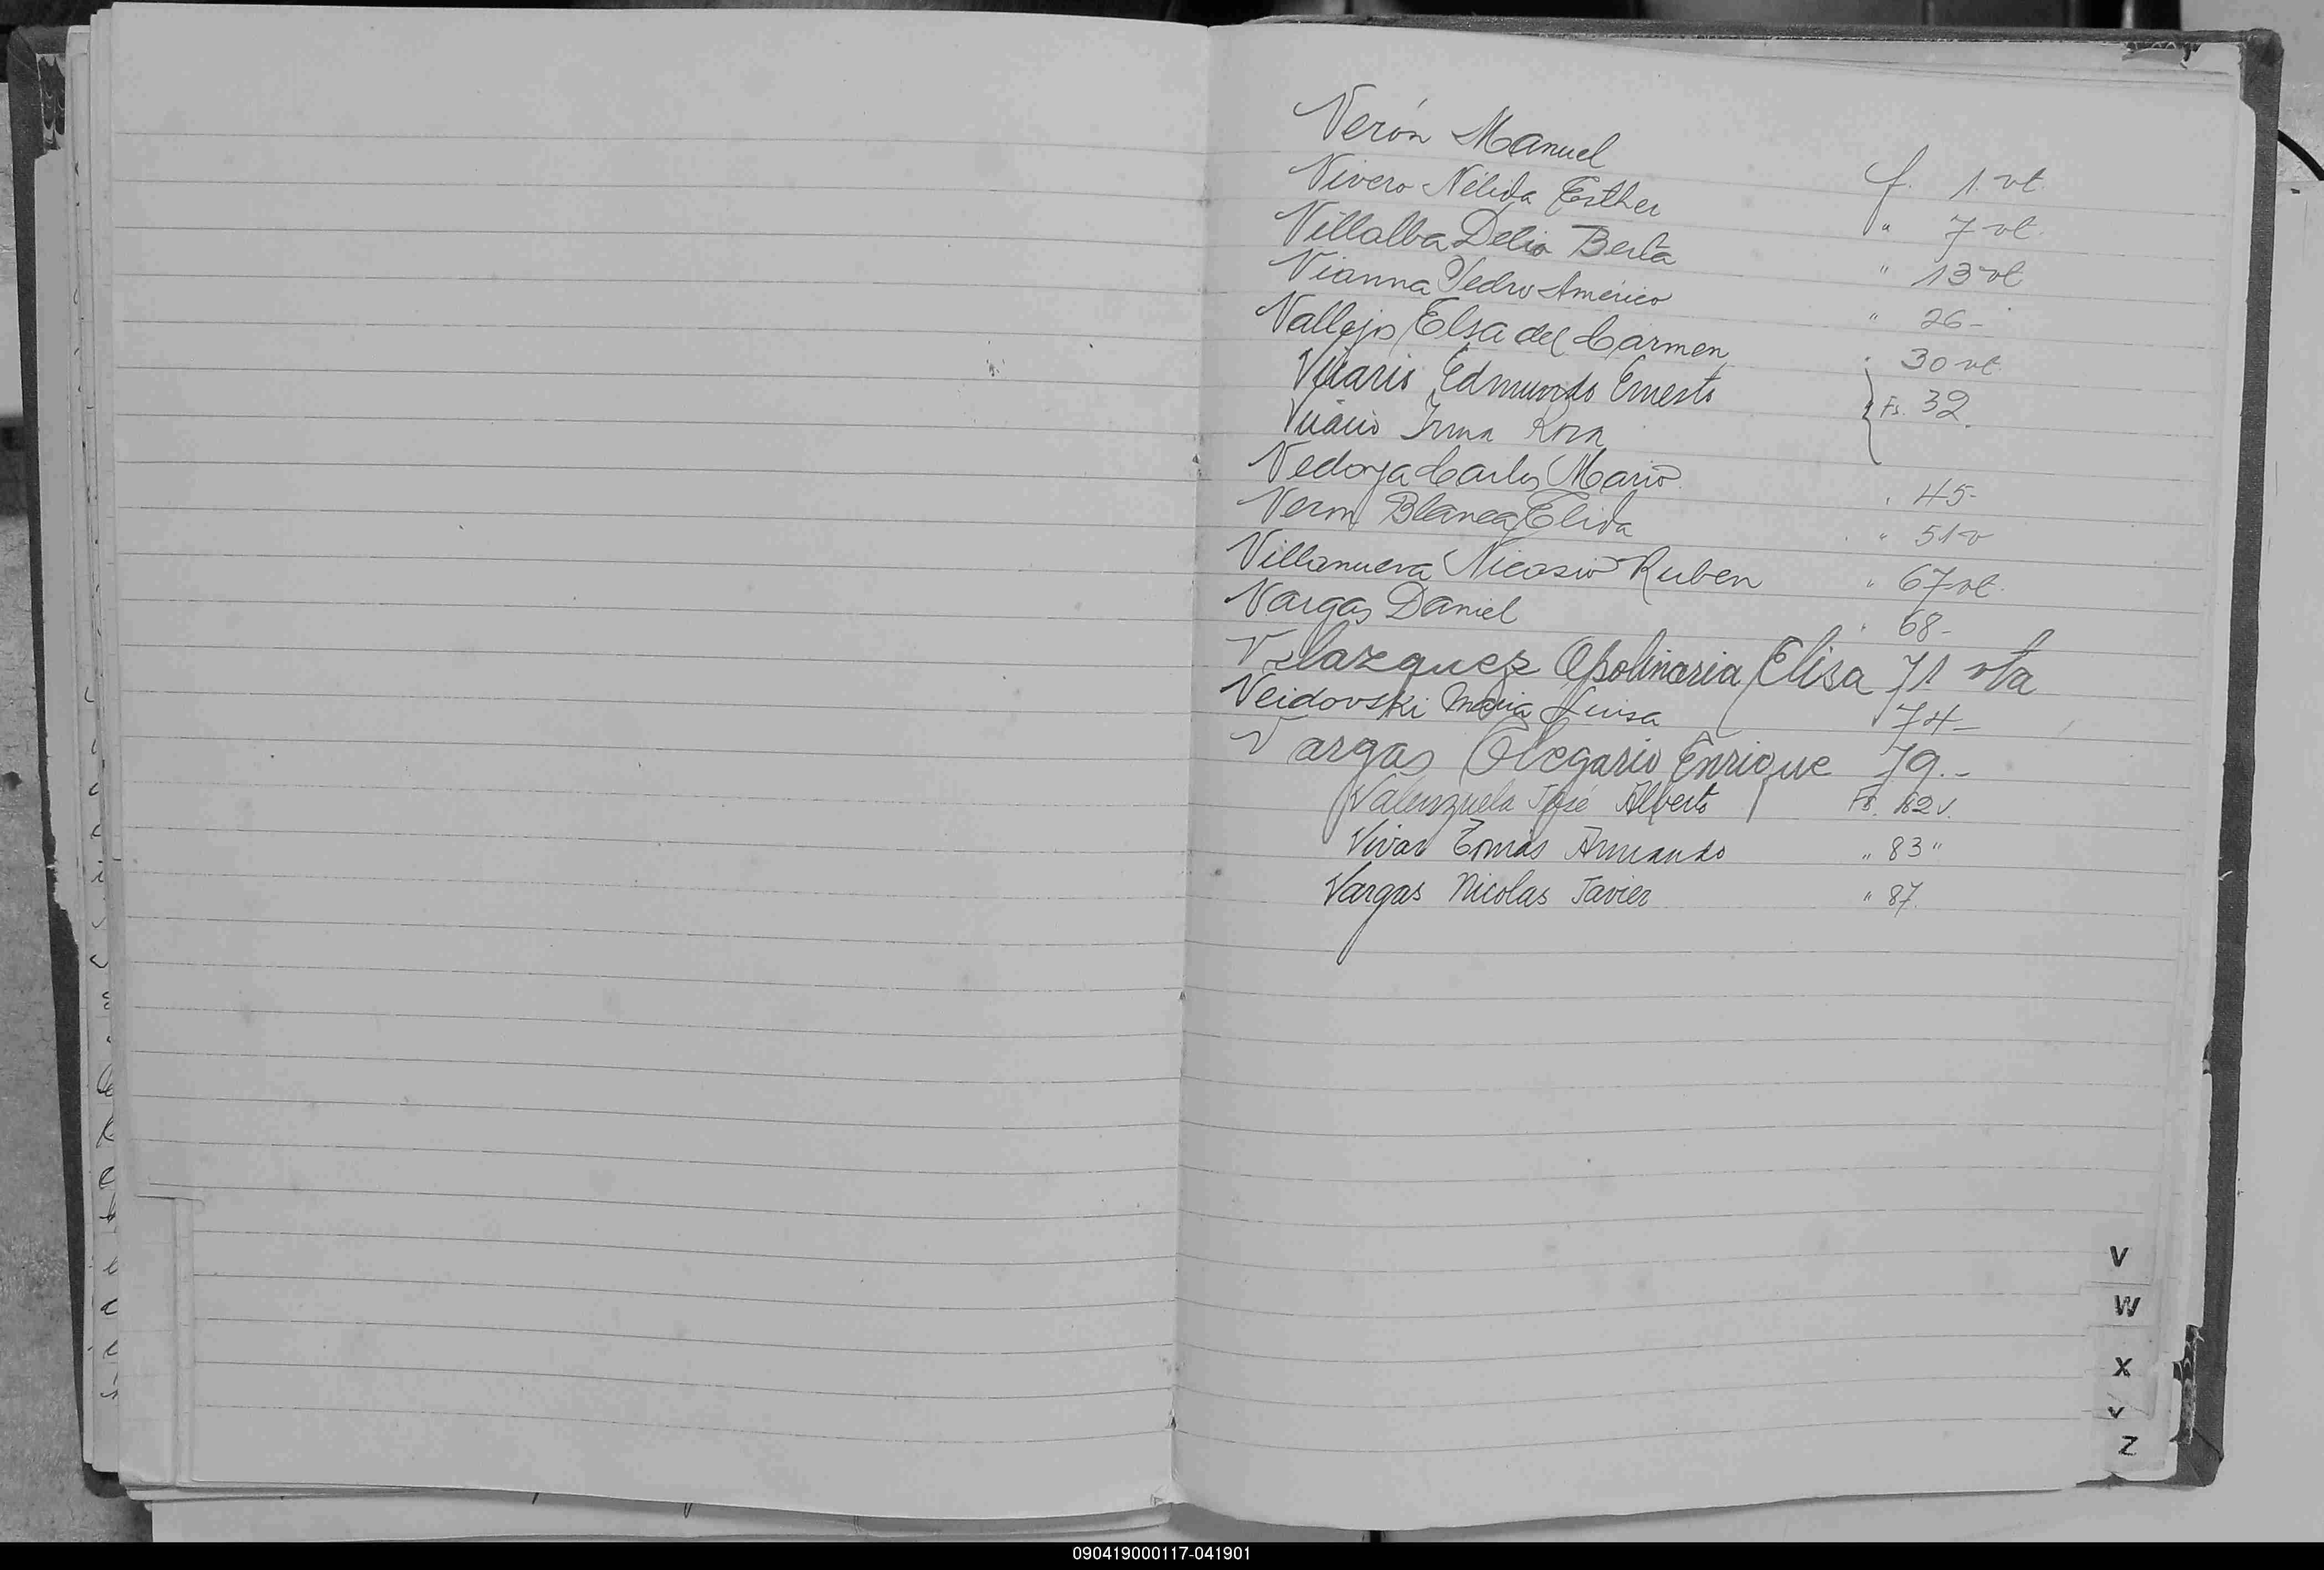 Verón Manuel f. 1. vt.
Vivero Nélida Esther " 7 vt.
Villalba Delia Berta " 13 vt
Vianna Pedro Américo " 26-
Vallejo Elsa del Carmen " 30 vt.
Edmundo Ernesto Fs. 32.
Irma Rosa
Vedoya Carlos Mario " 45-
Veron Blanca Elida " 51 v
Villanueva Nicasio Ruben " 67 vt.
Vargas Daniel " 68-
Velazquez Apolinaria Elisa 71 vta
Veidovski Maria Luisa 74-
Vargas Olegario Enrique 79.-
Valenzuela José Alberto Fs. 82 v.
Vivar Tomás Armando " 83 "
Vargas Nicolas Javier " 87.
V
W
X
Z
090419000117-041901